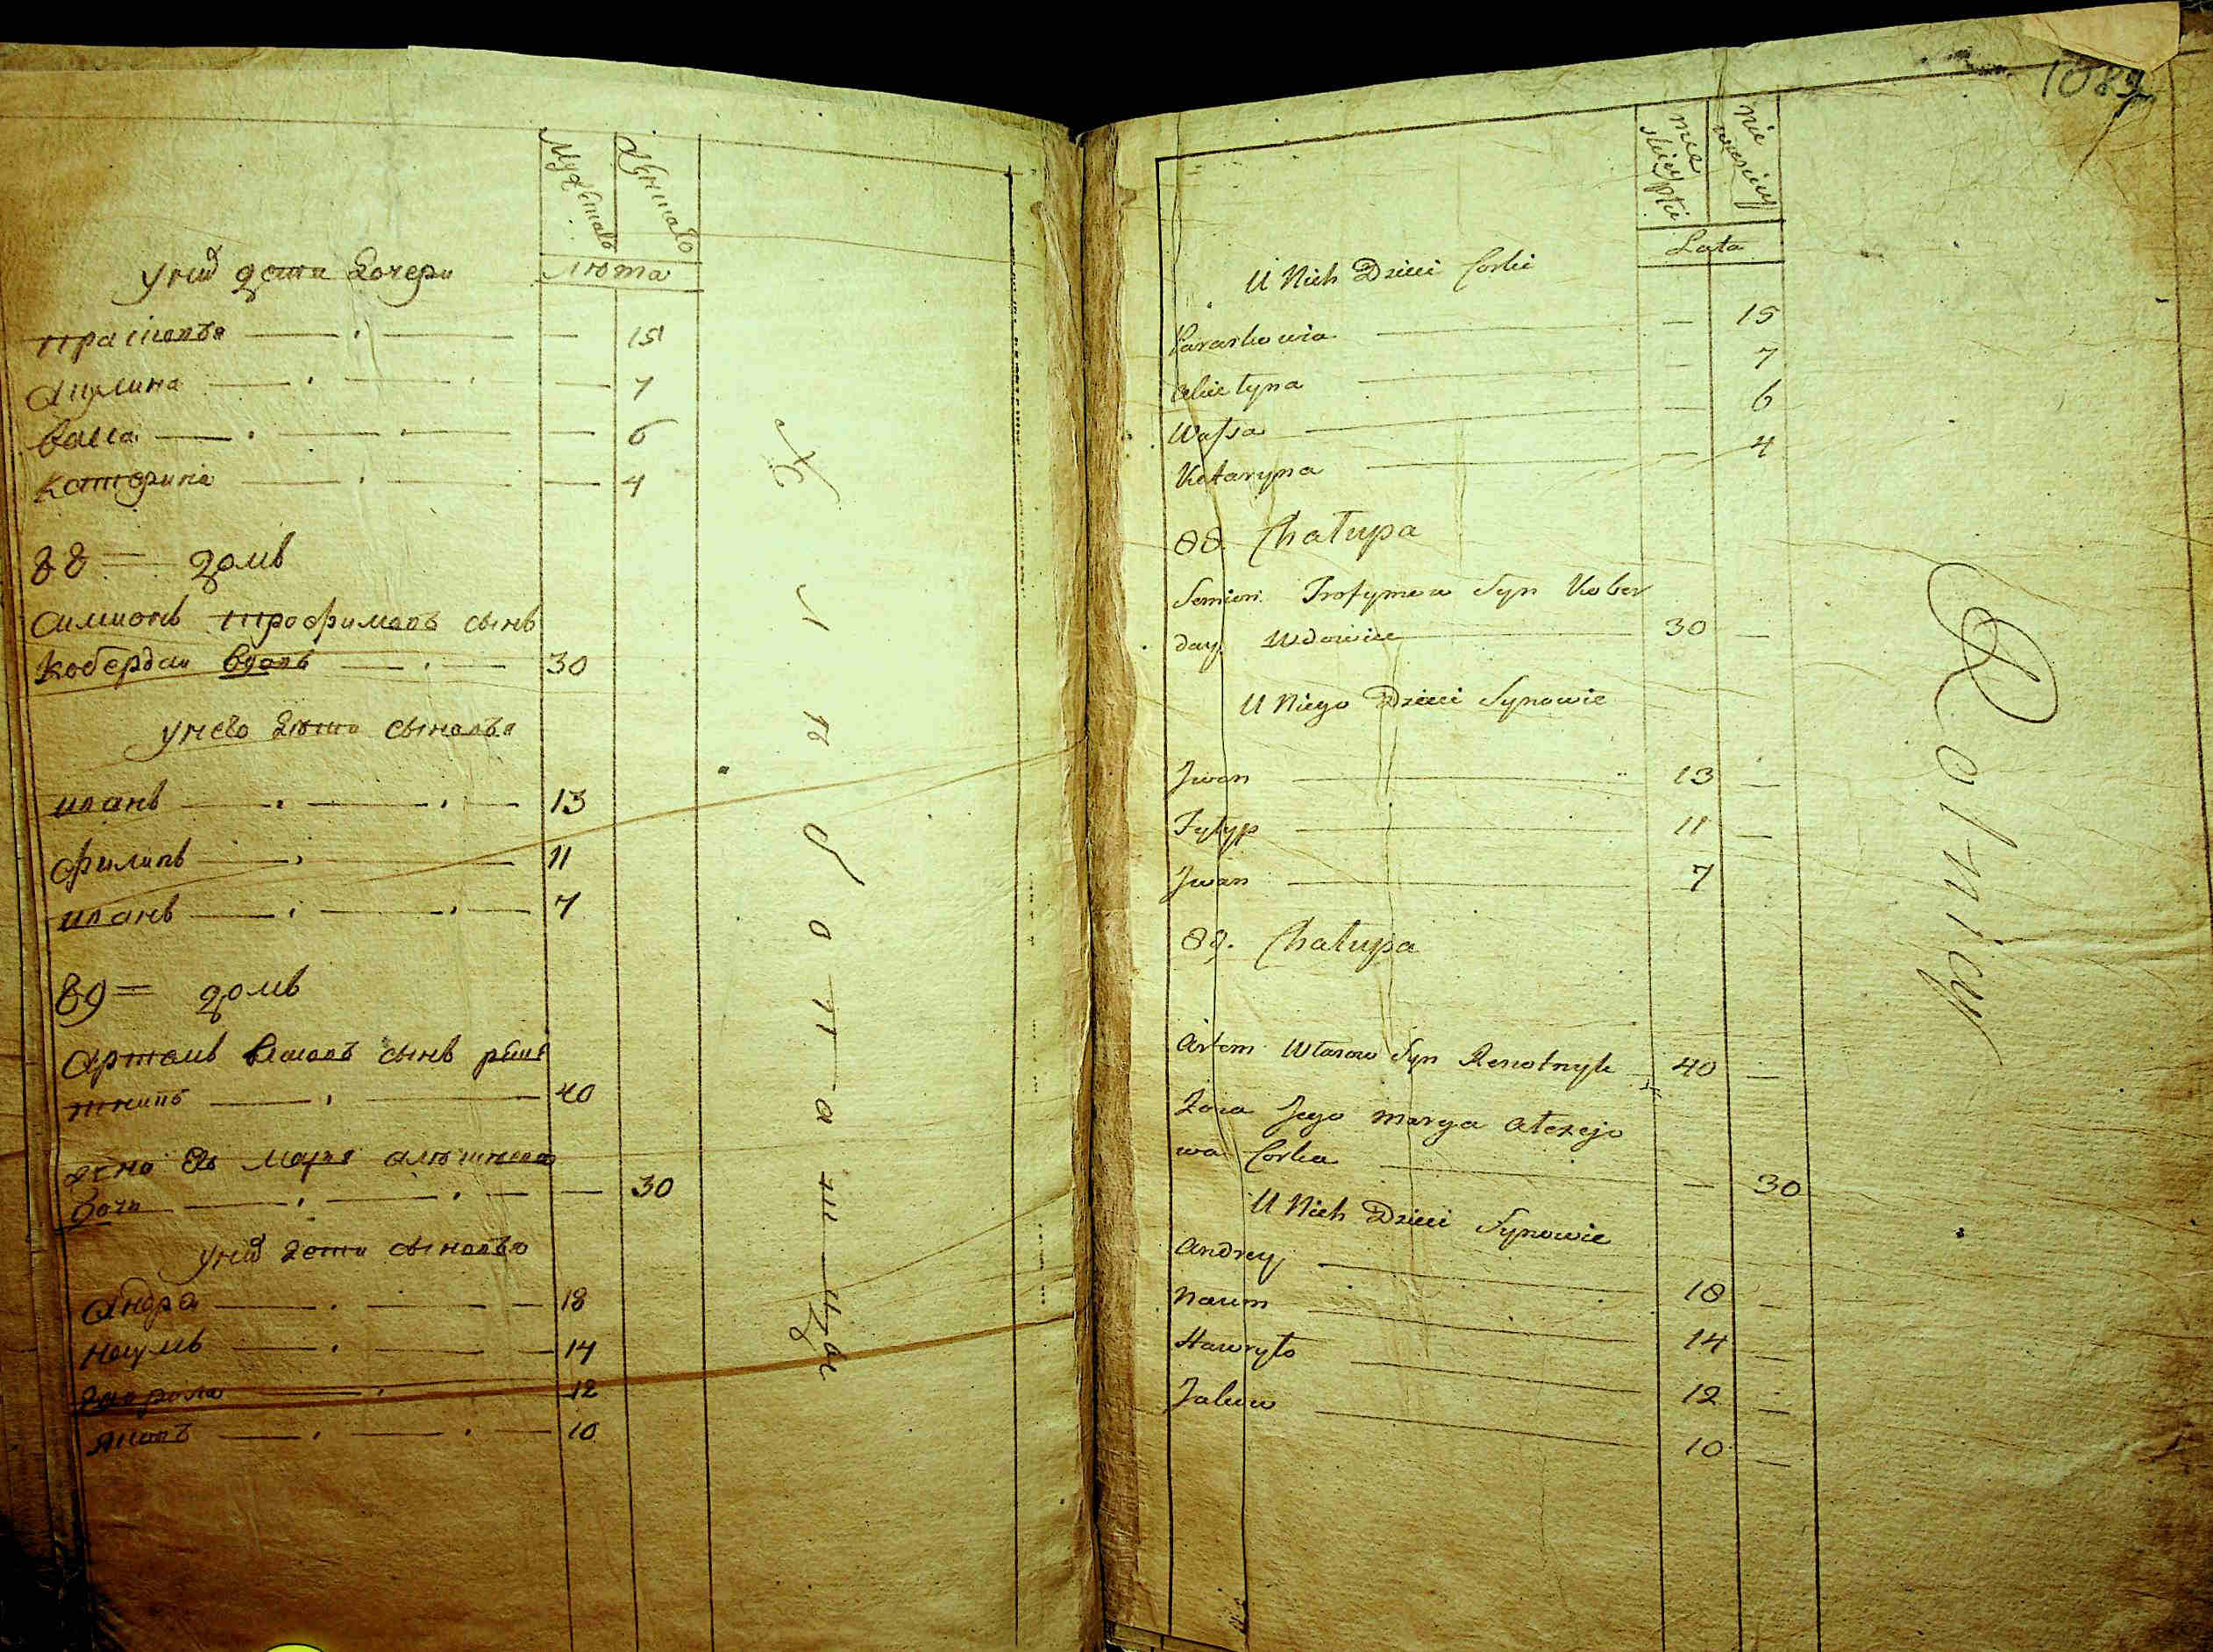 Мужеска
Женска
Лѣта
у них дети дочери
прасковя 15
Акулина 7
васса 6
катерина 4
88 = домъ
симионъ трофимовъ сынъ
кобердаи вдовъ 30
у нево дѣти сыновья
иванъ 13
филипъ 11
иванъ 7
89 = домъ
Артемъ сынъ
40
жена ево маря
дочь 30
у них дети сыновья
Андре 18
наумъ 14
гаврила 12
яковъ 10
1089
męskiey płci
Lata
U Nich Dzieci Corki
Paraskowia 15
7
Wassa 6
Kataryna 4
88. Chałupa
Semion Trofymow Syn Kober
day Wdowiec 30 —
U Niego Dzieci Synowie
Jwan 13 —
Fylyp 11 —
Jwan 7
89. Chałupa
Artem Własow Syn Reszotnyk 40 —
Żona Jego Marya Ałexeje
wa Corka — 30
U Nich Dzieci Synowie
Andrey 18 —
Naum 14 —
Hawryło 12 —
Jakow 10 —
Rolnicy